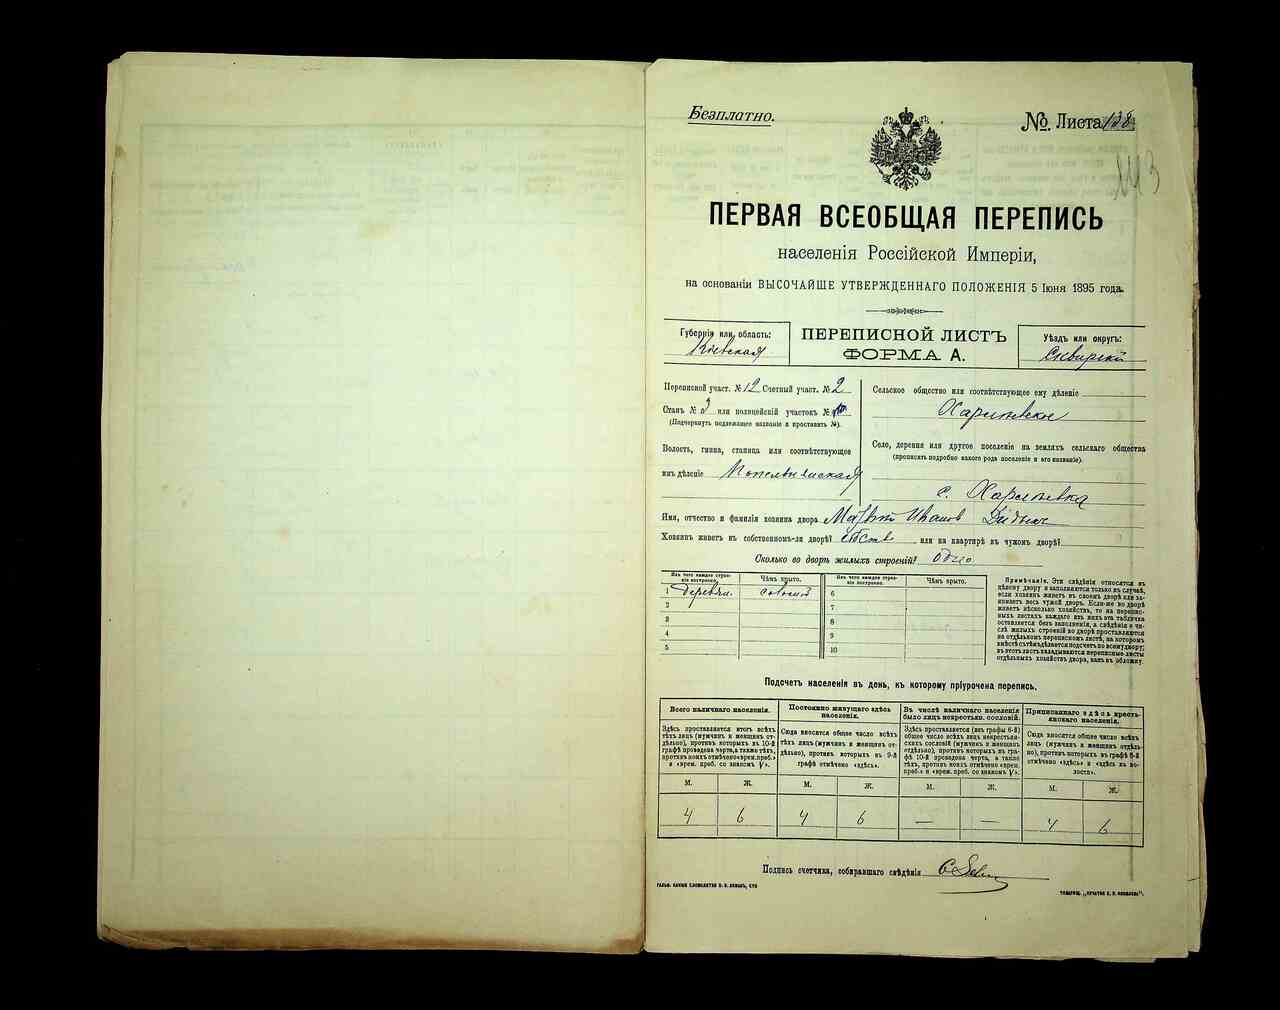 Безплатно.
№ Листа 138
113
ПЕРВАЯ ВСЕОБЩАЯ ПЕРЕПИСЬ
населенія Россійской Имперіи,
на основаніи ВЫСОЧАЙШЕ УТВЕРЖДЕННАГО ПОЛОЖЕНІЯ 5 Іюня 1895 года.
Губернія или область:
Кіевская
ПЕРЕПИСНОЙ ЛИСТЪ
ФОРМА А.
Уѣздъ или округъ:
Сквирскій
Переписной участ. № 12 Счетный участ. № 2
Станъ № 3 или полицейскій участокъ №
(Подчеркнуть подлежащее названіе и проставить №).
Волость, гмина, станица или соотвѣтствующее
имъ дѣленіе Попельнянская
Сельское общество или соотвѣтствующее ему дѣленіе
Харлеевское
Село, деревня или другое поселеніе на земляхъ сельскаго общества
(прописать подробно какого рода поселеніе и его названіе).
с. Харлеевка
Имя, отчество и фамилія хозяина двора Иванов
Хозяинъ живетъ въ собственномъ-ли дворѣ? или на квартирѣ въ чужомъ дворѣ?
Сколько во дворѣ жилыхъ строеній? одно
Изъ чего каждое строеніе построено. Чѣмъ крыто. Изъ чего каждое строеніе построено. Чѣмъ крыто.
1 деревян. соломой 6
2 7
3 8
4 9
5 10
Примѣчаніе. Эти свѣдѣнія относятся къ
цѣлому двору и заполняются только въ случаѣ,
если хозяинъ живетъ въ своемъ дворѣ или занимаетъ
весь чужой дворъ. Если-же во дворѣ
живетъ нѣсколько хозяйствъ, то на переписныхъ
листахъ каждаго изъ нихъ эта табличка
оставляется безъ заполненія, а свѣдѣнія о числѣ
жилыхъ строеній во дворѣ проставляются
на отдѣльномъ переписномъ листѣ, на которомъ
вмѣстѣ съ тѣмъ дѣлается подсчетъ по всему двору;
въ этотъ листъ вкладываются переписные листы
отдѣльныхъ хозяйствъ двора, какъ въ обложку.
Подсчетъ населенія въ день, къ которому пріурочена перепись.
Всего наличнаго населенія.
Здѣсь проставляется итогъ всѣхъ
тѣхъ лицъ (мужчинъ и женщинъ отдѣльно),
противъ которыхъ въ 10-й
графѣ проведена черта, а также тѣхъ,
противъ коихъ отмѣчено «врем. преб.»
и «врем. преб. со знакомъ V».
Постоянно живущаго здѣсь
населенія.
Сюда вносятся общее число всѣхъ
тѣхъ лицъ (мужчинъ и женщинъ отдѣльно),
противъ которыхъ въ 9-й
графѣ отмѣчено «здѣсь».
Въ числѣ наличнаго населенія
было лицъ некрестьян. сословій.
Здѣсь проставляется (изъ графы 6-й)
общее число всѣхъ лицъ некрестьянскихъ
сословій (мужчинъ и женщинъ
отдѣльно), противъ которыхъ въ графѣ
10-й проведена черта, а также
тѣхъ, противъ коихъ отмѣчено «врем.
преб.» и «врем. преб. со знакомъ V».
Приписаннаго здѣсь крестьянскаго
населенія.
Сюда вносятся общее число всѣхъ
лицъ (мужчинъ и женщинъ отдѣльно),
противъ которыхъ въ графѣ 8-й
отмѣчено «здѣсь» и «здѣсь въ волости».
М. Ж. М. Ж. М. Ж. М. Ж.
4 6 4 6 — — 4 6
Подпись счетчика, собиравшаго свѣдѣнія